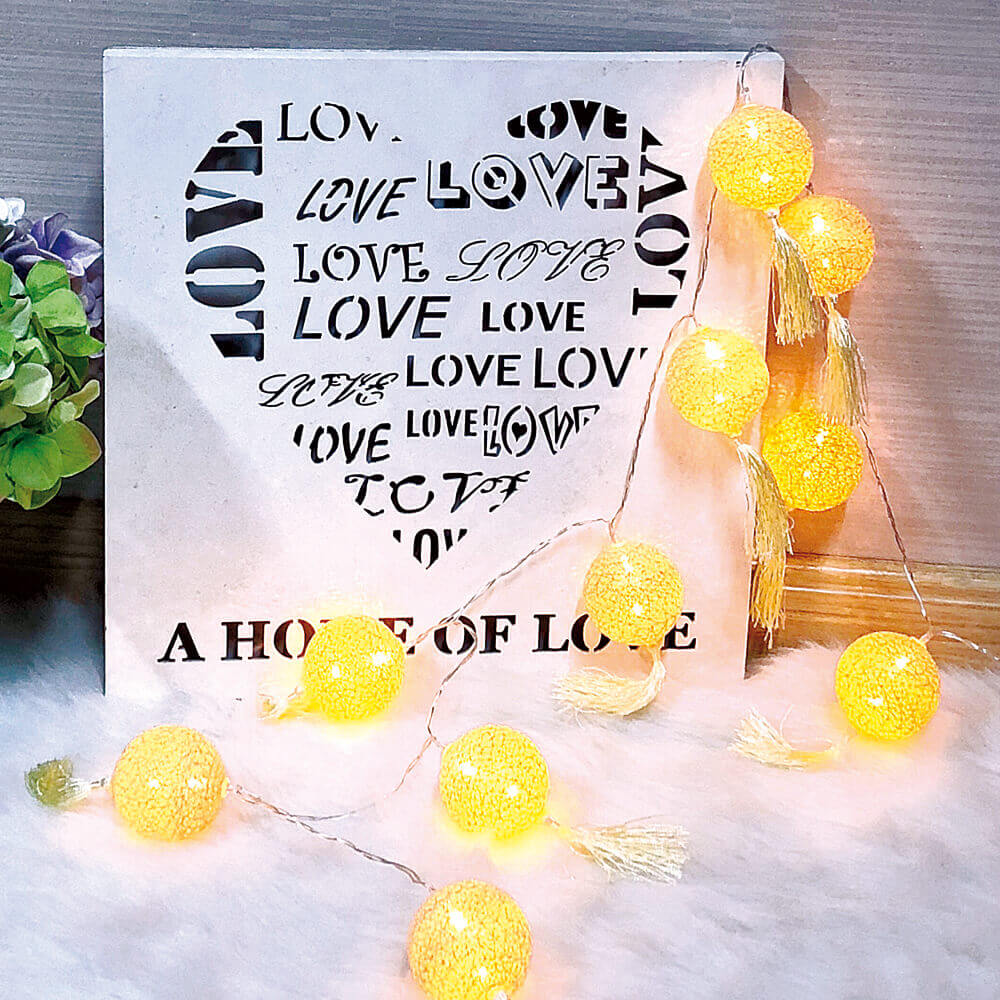 LOVE
LOV
LOVE
LOVE
LOVE
LOVE
LOVE
LOVE
LOVE
LOVE
LOVE
LOVE
LOVE
LOV
LOVE
LOVE
LOVE
LOVE
LOV
A HOME OF LOVE